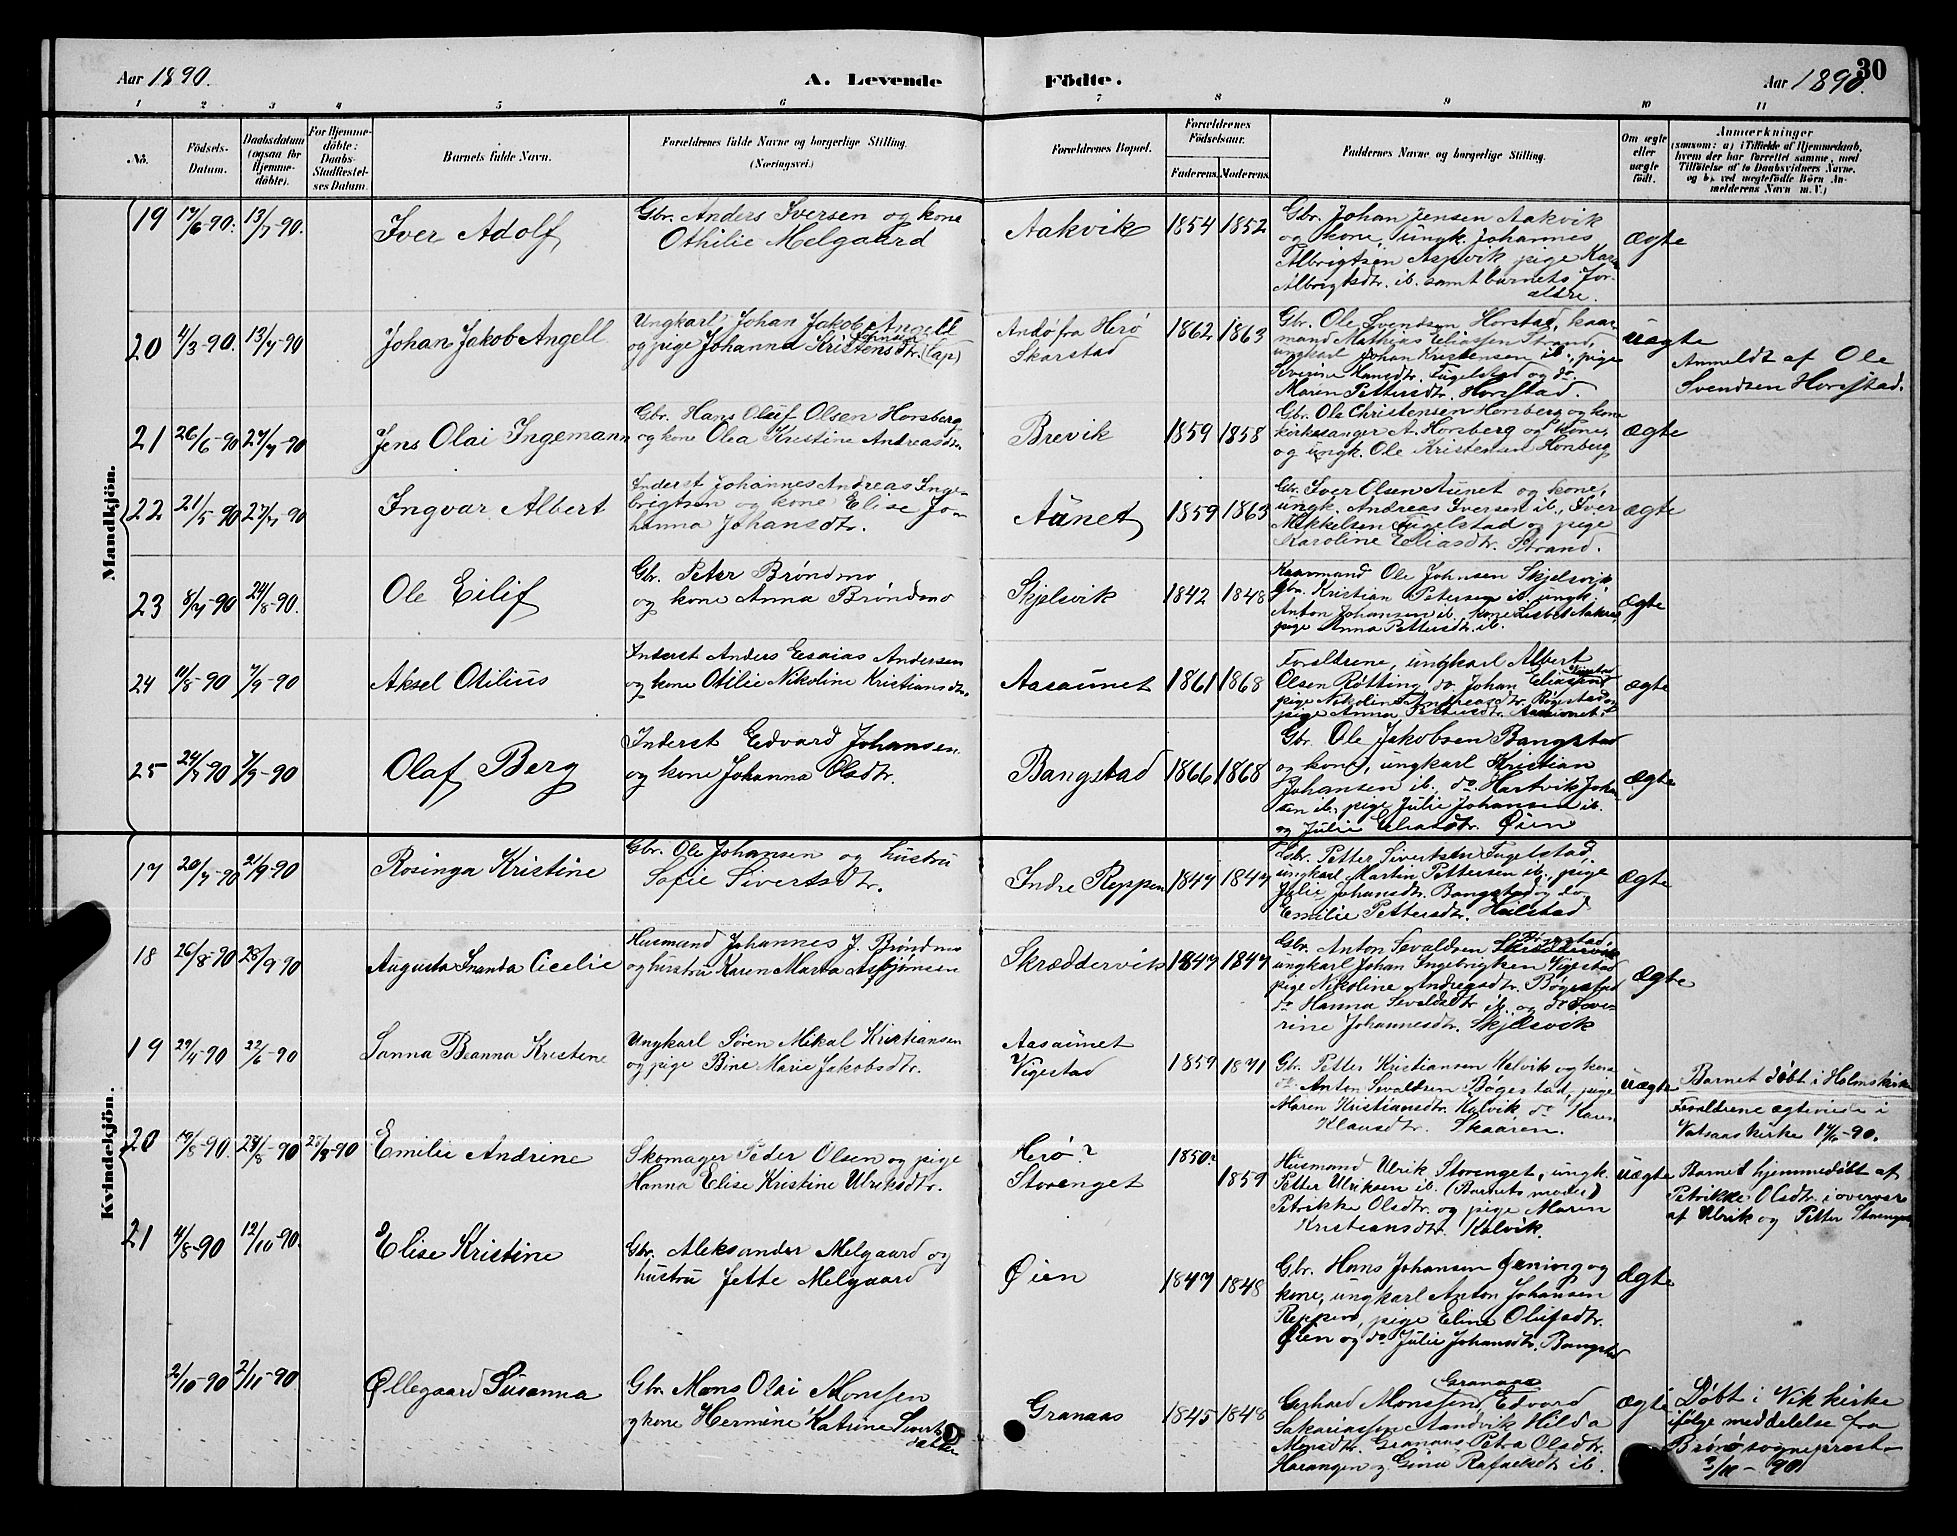 Aar 1890.
A. Levende Födte.
Aar 1890.
30
1 2 3 4 5 6 7 8 9 10 11
No.
Födsels-Datum.
Daabsdatum (ogsaa for Hjemme-döbte).
For Hjemme-döbte: Daabs-Stadfæstel-ses Datum.
Barnets fulde Navn.
Forældrenes fulde Navne og borgerlige Stilling.
(Næringsvei.)
Forældrenes Bopæl.
Forældrenes Födselsaar.
Faderens. Moderens.
Faddernes Navne og borgerlige Stilling.
Om ægte eller uægte födt.
Anmærkninger
(saasom: a) i Tilfælde af Hjemmedaab, hvem der har forrettet samme, med Tilföielse af to Daabsvidners Navne, og b) ved uægtefödte Börn Anmelderens Navn m. V.)
Mandkjön.
19 17/6-90. 13/7-90. Iver Adolf
Gbr. Anders Iversen og kone
Othilie Melgaard
Aakvik 1854 1852
Gbr. Johan Jensen Aakvik
og kone, ungk. Johannes
Albrigtsen Aspvik pige Karen
Albrigtsdtr. ib. samt barnets for-
ældre.
ægte
20 4/3-90. 13/7-90 Johan Jakob Angell
Ungkarl Johan Jakob Angell
og pige Johanna Kristensdtr. (Lap)
Andø fra Herø
Skarstad
1862 1863
Gbr. Ole Svendsen Horstad, kaar-
mand Mathias Eliassen Strand,
ungkarl Johan Kristensen ib., pige
Severine Hansdtr. Fugelstad og do.
Maren Pettersdtr. Horstad.
uægte
Anmeldt af Ole
Svendsen Horstad.
21 26/6-90 27/7-90 Jens Olai Ingemann
Gbr. Hans Oluf Olsen Horsberg
og kone Olea Kristine Andreasdtr.
Brevik 1859 1858
Gbr. Ole Christensen Horsberg og kone
kirkesanger A. Horsberg og kone,
og ungk. Ole Kristensen Horsberg
ægte
22 21/5-90 27/7-90 Ingvar Albert
Inderst Johannes Andreas Inge-
brigtsen og kone Elise Jo-
hanna Johansdtr.
Aunet 1859 1863
Gbr. Iver Olsen Aunet og kone,
ungk. Andreas Iversen ib., Iver
Mikkelsen Fugelstad og pige
Karoline Eliasdtr. Strand.
ægte
23 8/7-90 24/8-90. Ole Eilif
Gbr. Peter Brøndmo
og kone Anna Brøndmo
Skjelsvik 1842 1848
Kaarmand Ole Johnsen Skjelsvik
Gbr. Kristian Petersen ib, ungk.
Anton Johansen ib. kone Lisbet Aakvik
pige Anna Pettersdtr. ib.
ægte
24 11/8-90 7/9-90 Aksel Otilius
Inderst Anders Esaias Andersen
og kone Otilie Nikoline Kristiansdtr.
Aasaunet 1861 1868
Forældrene, ungkarl Albert
Olsen Røtting, do. Johan Eliassen
pige Nikoline Andreasdtr. Bøgestad og
pige Anna Petersdtr. Aasaunet.
ægte
25 24/7-90 7/9-90 Olaf Berg
Inderst Edvard Johansen
og kone Johanna Olsdtr.
Bangstad 1866 1868
Gbr. Ole Jakobsen Bangstad
og kone, ungkarl Kristian
Johansen ib., do. Hartvik Johan-
sen ib., pige Julie Johansen ib.
og Julie Eliasdtr. Øien
ægte
Kvindekjön.
17 20/7-90 21/9-90 Rosinga Kristine
Gbr. Ole Johansen og hustru
Sofie Sivertsdtr.
Indre Reppen 1847 1847
Gbr. Petter Sivertsen Fugelstad,
ungkarl Martin Pettersen ib., pige
Julie Johansdtr. Bangstad og do.
Emilie Pettersdtr. Heilstad
ægte
18 26/8-90 28/9-90 Augusta Inanda Cecelie
Husmand Johannes J. Brøndmo
og hustru Karen Marta Asbjørnsen
Skræddervik 1847 1847
Gbr. Anton Sevaldsen Bøgestad,
ungkarl Johan Ingebrigtsen Vigestad
pige Nikoline Andreasdtr. Bøgestad
do Hanna Sevaldsdtr. ib. og do Seve-
rine Johannesdtr. Skjelsvik
ægte
19 29/4-90 22/6-90 Sanna Beanna Kristine
Ungkarl Søren Mikal Kristiansen
og pige Bine Marie Jakobsdtr.
Aasaunet
Vigestad
1859 1871
Gbr. Petter Kristiansen Kalvik og kone
do Anton Sevaldsen Bøgestad, pige
Maren Kristiansdtr. Kalvik, do Karen
Klausdtr. Skaaren.
uægte
Barnet døbt i Holmskirke
Forældrene ægteviede i
Vatsaas kirke 14/9-90.
20 19/8-90. 24/8-90 28/9-90 Emilie Andrine
Skomager Peder Olsen og pige
Hanna Elise Kristine Ulriksdtr.
Herø?
Storenget
1850? 1859
Husmand Ulrik Storenget, ungk.
Petter Ulriksen ib. (Barnets moder)
Petrikke Olsdtr. og pige Maren
Kristiansdtr. Kalvik.
uægte
Barnet hjemmedøbt af
Petrikke Olsdtr. i overvær
af Ulrik og Petter Storenget
21 4/8-90 12/10-90. Elise Kristine
Gbr. Aleksander Melgaard og
hustru Jette Melgaard
Øien 1847 1848
Gbr. Hans Johansen og
kone, ungkarl Anton Johansen
Reppen, pige Eline Olufsdtr.
Øien og do Julie Johansdtr. Bangstad
ægte
2/10-90 2/11-90. Øllegaard Susanna
Gbr. Mons Olai Monssen
og kone Hermine Katrine Siverts
datter
Granaas 1845 1848
Granaas
Gerhard Monssen, Edvard
Sakariassen Sandvik Hilda
Monsdtr. Granaas Petra Olsdtr.
Harangen og Gina Rafaelsdtr ib.
ægte
Døbt i Vik kirke
ifølge meddelelse fra
Brønø sogneprest
3/11-90